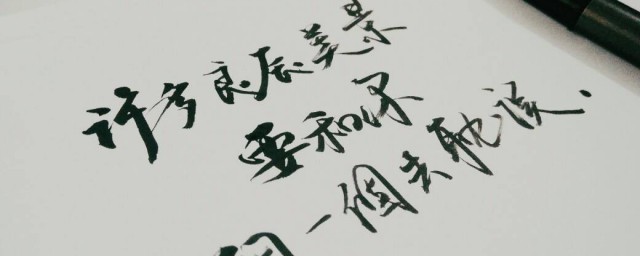 许多良辰美景
要和不
同一個去耽误.